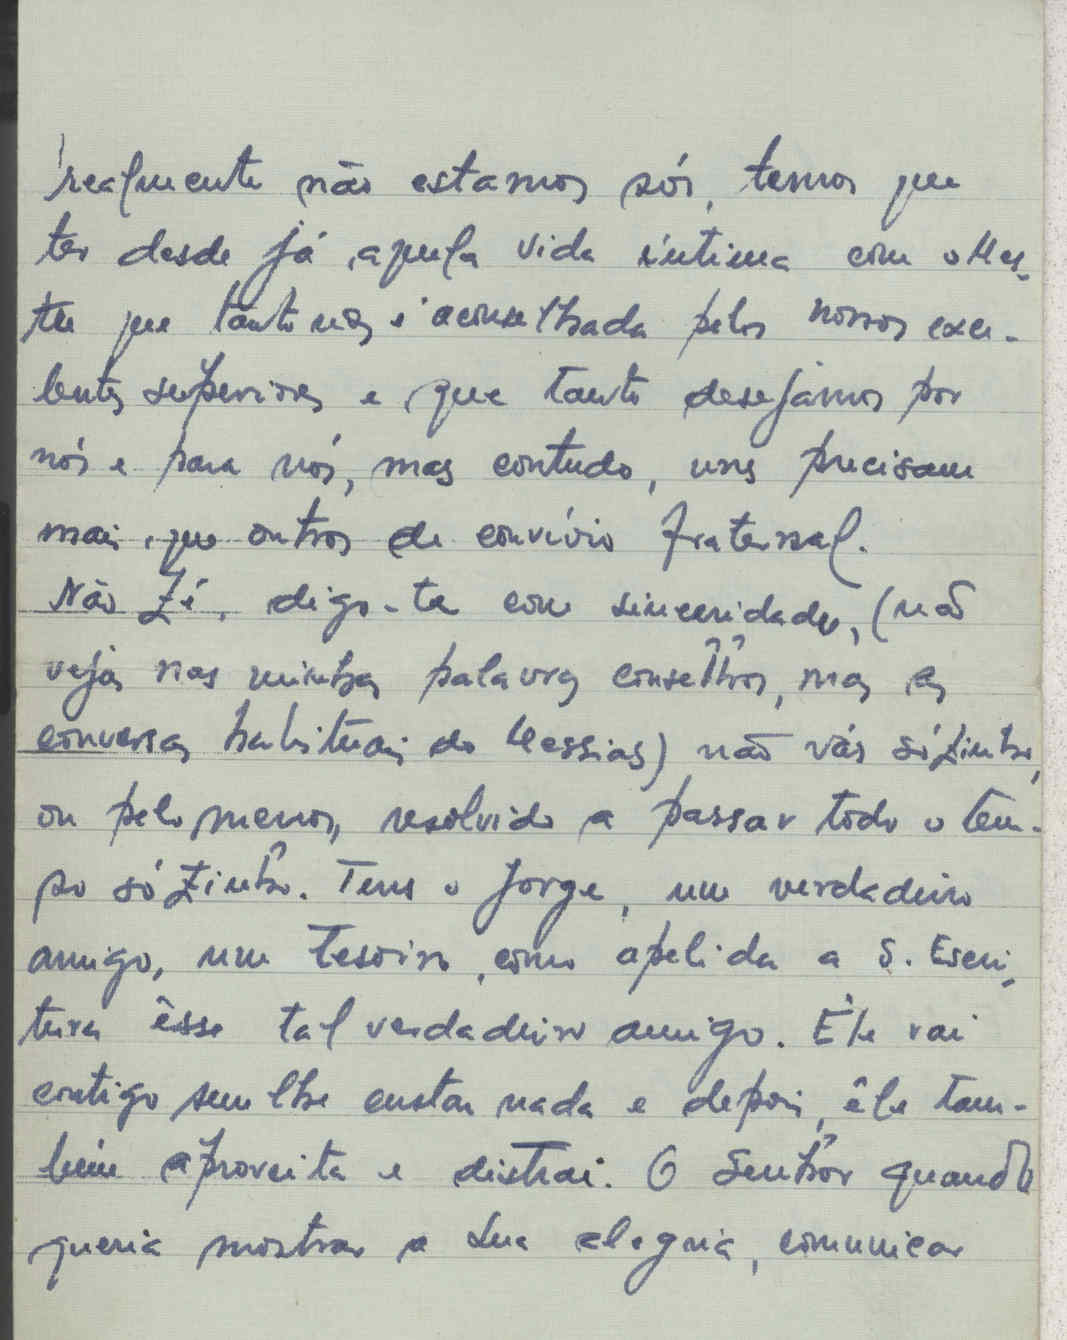 realmente não estamos sós, temos que
ter desde já, aquela vida íntima com o Mes-
tre que tanto nos é aconselhada pelos nossos exce-
lentes superiores e que tanto desejâmos por
nós e para nós, mas contudo, uns precisam
mais, que outros de convívio fraternal.
Não Zé, digo-te com sinceridade, (não
vejas nas minhas palavras conselhos, mas as
conversas habituais do Messias) não vás sózinho,
ou pelo menos, resolvido a passar todo o tem-
po sózinho. Tens o Jorge, um verdadeiro
amigo, um tesoiro, como apelida a S. Escri-
tura êsse tal verdadeiro amigo. Êle vai
contigo sem lhe custar nada e depois, êle tam-
bém aproveita e distrai. O Senhor quando
queria mostrar a Sua alegria, comunicar